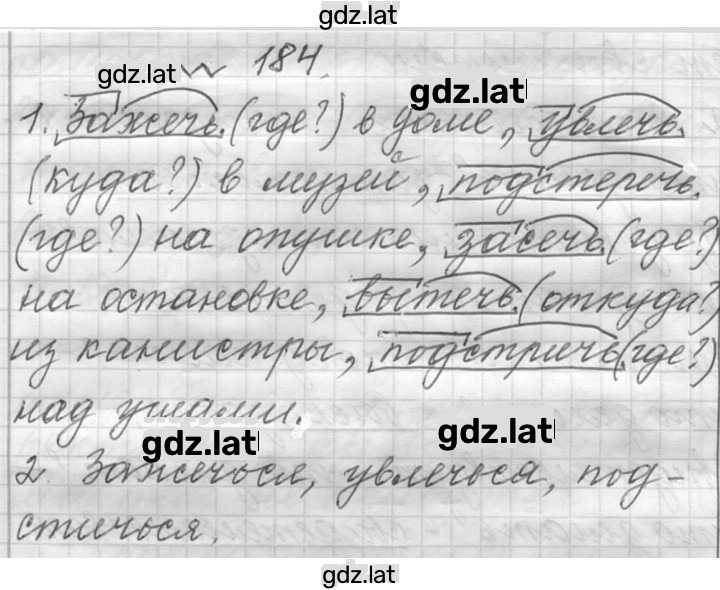 gdz.lat
gdz.lat № 184.
gdz.lat
1. Зажечь (где?) в доме, увлечь
(куда?) в музей, подстеречь
(где?) на опушке, засечь (где?)
на остановке, вытечь (откуда?)
из канистры, подстричь (где?)
над ушами.
gdz.lat gdz.lat
2. Зажечься, увлечься, под-
стичься.
gdz.lat